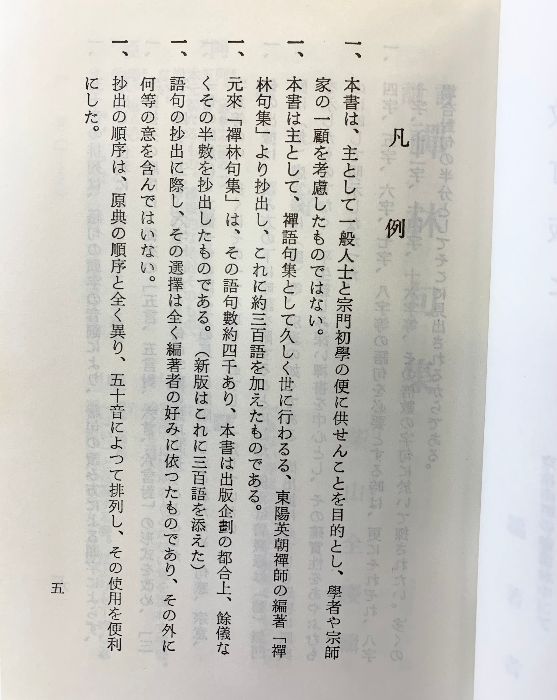 凡例
一、本書は、主として一般人士と宗門初學の便に供せんことを目的とし、學者や宗師
家の一顧を考慮したものではない。
一、本書は主として、禪語句集として久しく世に行わるる、東陽英朝禪師の編著「禪
林句集」より抄出し、これに約三百語を加えたものである。
一、元來「禪林句集」は、その語句數約四千あり、本書は出版企劃の都合上、餘儀な
くその半數を抄出したものである。（新版はこれに三百語を添えた）
一、語句の抄出に際し、その選擇は全く編著者の好みに依つたものであり、その外に
何等の意を含んではいない。
一、抄出の順序は、原典の順序と全く異り、五十音によつて排列し、その使用を便利
にした。
五